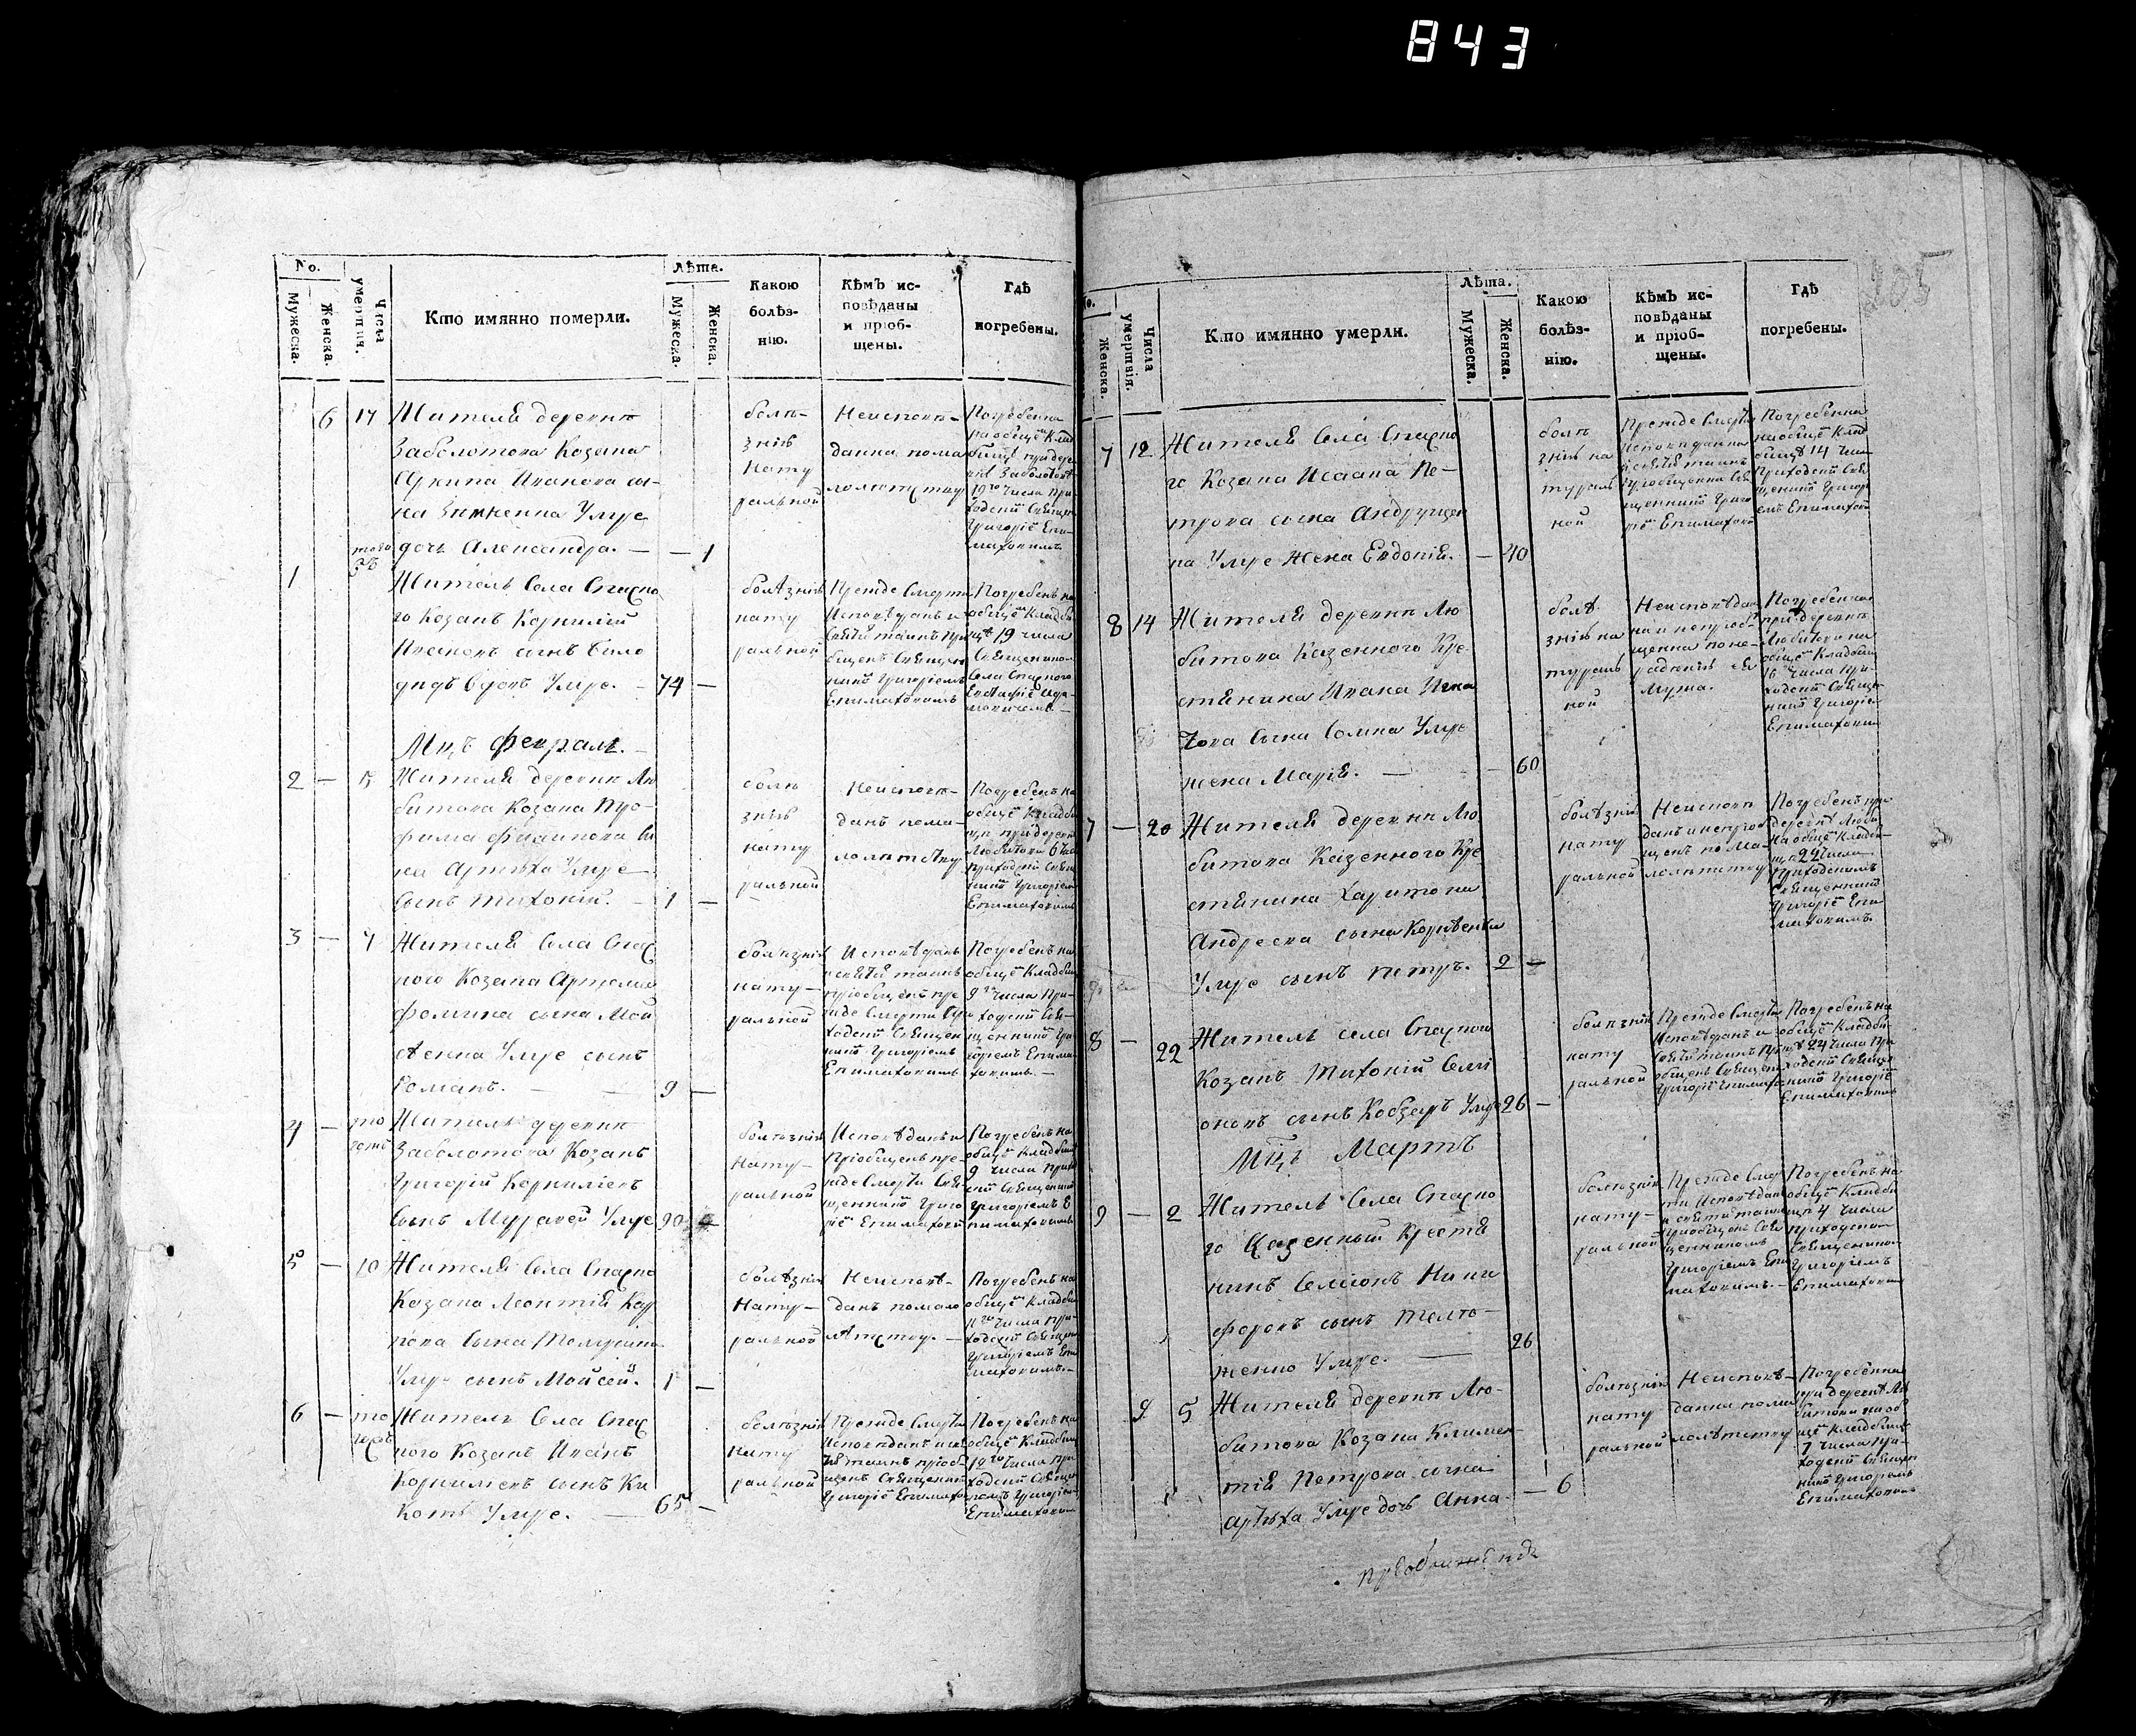 843
205
No.
Мужеска.
Женска.
Числа умертвія.
Кто имянно померли.
Лѣта.
Мужеска.
Женска.
Какою болѣз-
нію.
Кѣмъ ис-
повѣданы
и пріоб-
щены.
Гдѣ
погребены.
6 17 Жителя деревни
Заболотова Козака
Иванова сы-
на Умре
дочь Александра. — — 1
болѣ-
знію
нату
ральной
Неисповѣ-
данна по ма
лолетству
Погребенна
на общем клад
бищѣ при дерев
19го числа При
ходским Священ
Григорием Епи-
маховимъ
1
Житель Села Спаско
го Козакъ Корнилій
Ивановъ сынъ Било
дидъ вдовъ Умре. — 74 —
болѣзнію
нату
ральной
Прежде Смерти
Исповѣданъ и
Святых таинъ Прі
общенъ Священ
ником Григоріемъ
Епимаховимъ
Погребенъ на
общем Кладби
щѣ 19 числа
Священико
Села Спаского
Мцъ Февраль. —
2 — 5 Жителя деревни Лю
битова Козака Тро-
фима Филипова Сы
на Артюха Умре
Сынъ Тихоній. — 1 —
болѣ
знію
нату
ральной
Неисповѣ-
данъ по ма-
лолѣтству
Погребенъ на
общем Кладби
щи при деревни
Любитови 6 числ
приходским Свящ
ником Григорием
Епимаховимъ
3 — 7 Жителя Села Спас
ного Козака Артема
Фомина сына Мои
сѣенка Умре сынъ
Романъ. — — 9 —
болѣзнію
нату-
ральной
Исповѣданъ
и Святых таинъ
пріобщенъ пре
жде Смерти При
ходским Священ
ником Григоріемъ
Епимаховимъ
Погребенъ на
общем Кладби
9го числа При-
ходским Свя-
щенником Гри
горіемъ Епима
ховимъ. —
4 — то
гожъ Житель деревни
Заболотова Козакъ
Григорій Корниліевъ
Сынъ Муравей Умре 90 —
болѣзнію
нату-
ральной
Исповѣданъ и
Пріобщенъ пре-
жде Смерти Свя
щенником Григо
ріем Епимахови
Погребенъ на
общем Кладбищѣ
9 числа прихо
ским Священник
Григоріемъ Е
пимаховимъ
5 — 10 Жителя Села Спаско
Козака Леонтія Кар
пова Сына
Умре сынъ Мойсей. 1 —
болѣзнію
нату-
ральной
Неисповѣ-
данъ по мало
лѣтству. —
Погребенъ на
общем Кладби
11го числа При-
ходским Священ
Григоріемъ Епи
маховимъ. —
6 — то
гожъ Житель Села Спас
ного Козакъ Иванъ
Корнилиев сынъ Ки
коть Умре. — 65 —
болѣзнію
нату
ральной
Прежде Смерти
Исповѣданъ и Свя
тых таинъ пріоб
щенъ Священник
Григоріем Епимахо
Погребенъ на
общем Кладби
12го числа При
ходским Священ
Григоріем
Епимахови
Женска.
Числа умертвія.
Кто имянно умерли.
Лѣта.
Мужеска.
Женска.
Какою
болѣз-
нію.
Кѣмъ ис-
повѣданы
и пріоб-
щены.
Гдѣ
погребены.
7 12 Жителя Села Спаско
го Козака Исаака Пе-
трова сына Андрущен
ка Умре Жена Евдокія. — 40
болѣ
знію на
тураль
ной
Прежде Смерти
Исповѣданна
и Святых таинъ
Пріобщенна Свя
щенником Григо
ріем Епимахови
Погребенна
на общем Клад
бищѣ 14 числ
Приходским Свя
щеником Григорі
емъ Епимахови
8 14 Жителя деревни Лю
битова Казенного Кре
стянина Ивана Игна
това Сына Сомка Умре
жена Марія. — — 60
болѣ
знію на
тураль
ной
Неисповѣдан
на и непріоб
щенна по не-
радѣнію ея
мужа.
Погребенна
при деревнѣ
Любитови на
общем Кладби
16 числа При-
ходским Священ
ником Григоріе
Епимахови
7 — 20 Жителя деревни Лю
битова Казенного Кре
стянина Харитона
Андреева сына Корнѣенка
Умре сынъ Петръ. 2 —
болѣзнію
нату
ральной
Неисповѣ
данъ и непріоб
щенъ по ма-
лолѣтству
Погребенъ при
деревнѣ Люби
на общем Кладби-
щи 22 числа
Приходскимъ
Священником
Григоріем Епи
маховимъ
8 — 22 Житель села Спаского
Козакъ Тихоній Семі
оновъ сынъ Кобзарь Умре 26 —
болѣзнію
нату
ральной
Прежде Смерти
Исповѣданъ и
Святых таинъ Прі
общенъ Священ
Григоріем Епимахо
Погребенъ на
общем Кладби-
щѣ 24 числа При
ходским Священ
ником Григоріем
Епимаховимъ
Мцъ Мартъ
9 — 2 Житель Села Спаско
го Казенный Крестя
нинъ Семіонъ Ники
форовъ сынъ Телю-
женко Умре. — 26
болѣзнію
нату-
ральной
Прежде Смер
ти Исповѣдан
и Святых таинъ
Пріобщенъ Свя
щенникомъ
Григоріемъ Епи
маховимъ. —
Погребенъ на
общем Кладби
щи 4 числа
приходским
Священико-
Григоріемъ
Епимахови
9 5 Жителя деревни Лю-
битова Козака Климен-
тія Петрова сына
Артюха Умре дочь Анна. — 6
болѣзнію
нату
ральной
Неисповѣ-
данна по ма
лолѣтству
Погребенна
при деревнѣ Лю
битови на об
щем Кладбищѣ
7 числа При-
ходским Священ
ником Григоріемъ
Епимахови